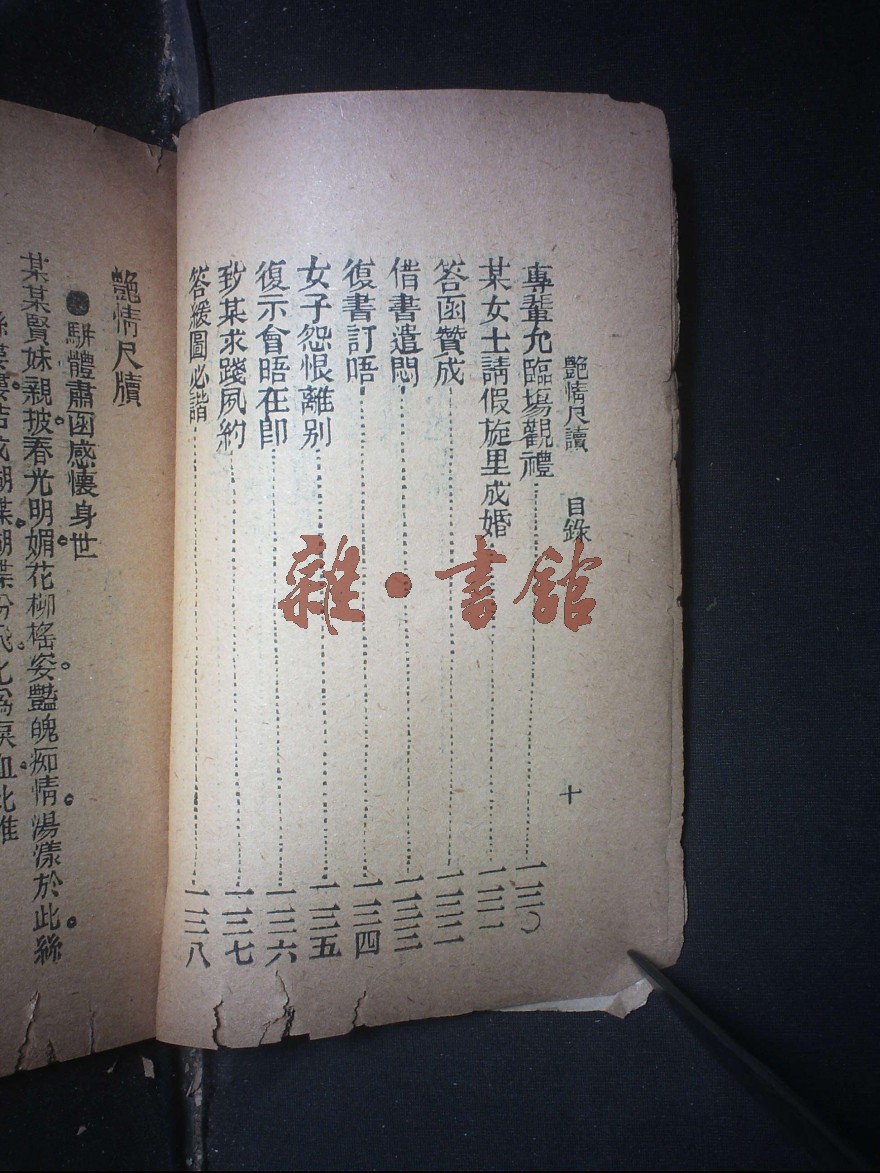 艷情尺讀　目錄　十
專輩允臨場觀禮……一三〇
某女士請假旋里成婚……一三一
答函贊成……一三二
借書遣悶……一三三
復書訂唔……一三四
女子怨恨離别……一三五
復示會晤在卽……一三六
致某求踐夙約……一三七
答緩圖必諧……一三八
雜・書館
艷情尺牘
●駢體肅函感懷身世
某某賢妹親披春光明媚花柳榣姿豔魄痴情湯漾於此絲
成蝴蝶蝴蝶份飛化爲淚血此惟